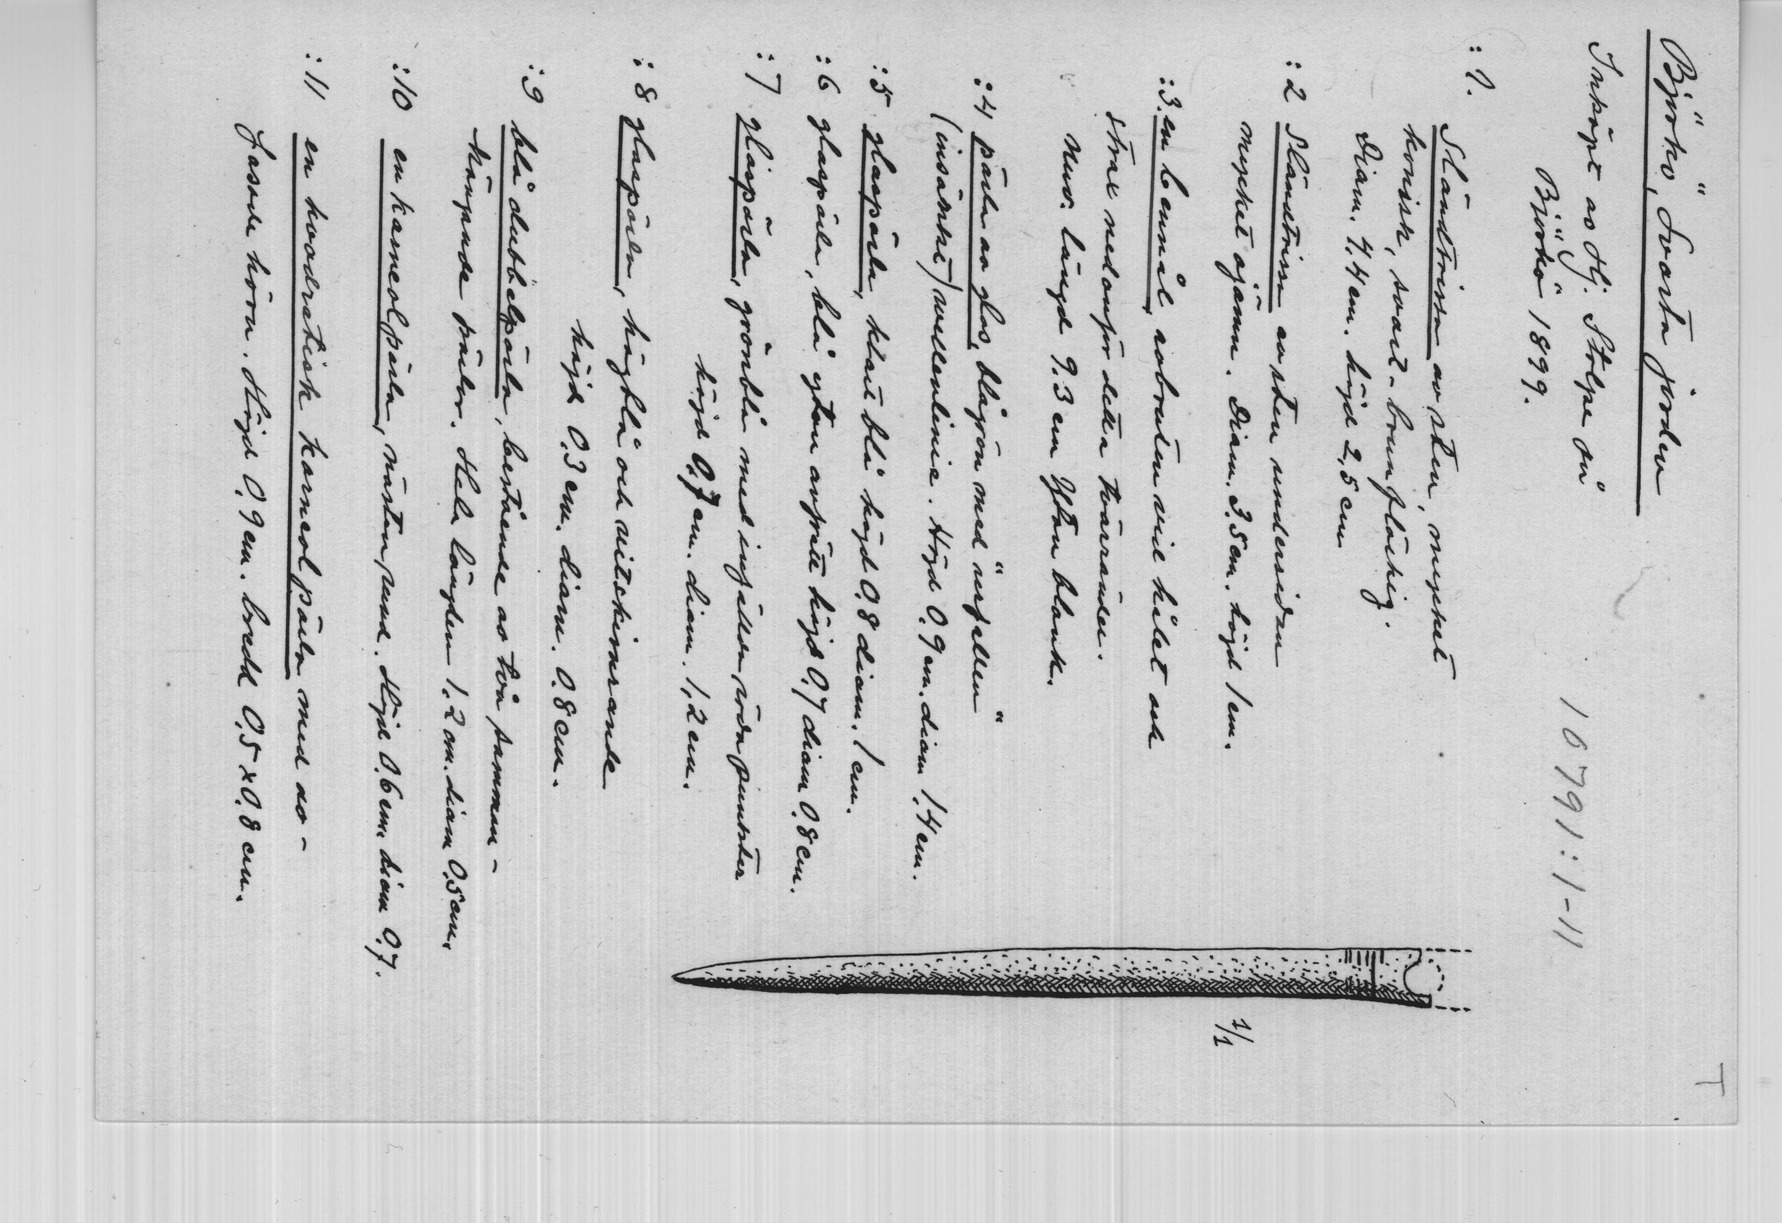 Björkö, Svarta jorden
Inköpt av Hj. Stolpe på
Björkö 1899.
10791:1-11
T
:1. Sländtrissa av sten, mycket
konisk, svart-brunfläckig.
Diam. 4.4 cm. höjd 2,5 cm
:2 Sländtrissa av sten undersidan
mycket ojämn. Diam. 3.5 cm. höjd 1 cm.
:3. en bennål, avbruten vid hålet och
strax nedanför detta tvärränder.
nuv. längd 9.3 cm Ytan blank.
:4 pärla av glas, blågrön med "infällen"
(insänkt) vullenlinie. Höjd 0,9 cm. diam 1,4 cm.
:5 glaspärla, klart blå höjd 0,8 diam. 1 cm.
:6 glaspärla, blå ytan avfrätt höjd 0,7 diam 0,8 cm.
:7 glaspärla, grönblå med infällda röda punkter
höjd 0,7 cm. diam. 1,2 cm.
:8 glaspärla, högblå och vitskimrande
höjd 0.3 cm. diam. 0.8 cm.
:9 blå dubbelpärla, bestående av två samman-
hängande pärlor. Hela längden 1,2 cm. diam 0,5 cm.
:10 en karneolpärla, nästan rund. Höjd 0,6 cm. diam 0,7.
:11 en kvadratisk karneolpärla med av-
fasade hörn. Höjd 0,9 cm. bredd 0,5 x 0,8 cm.
1/1